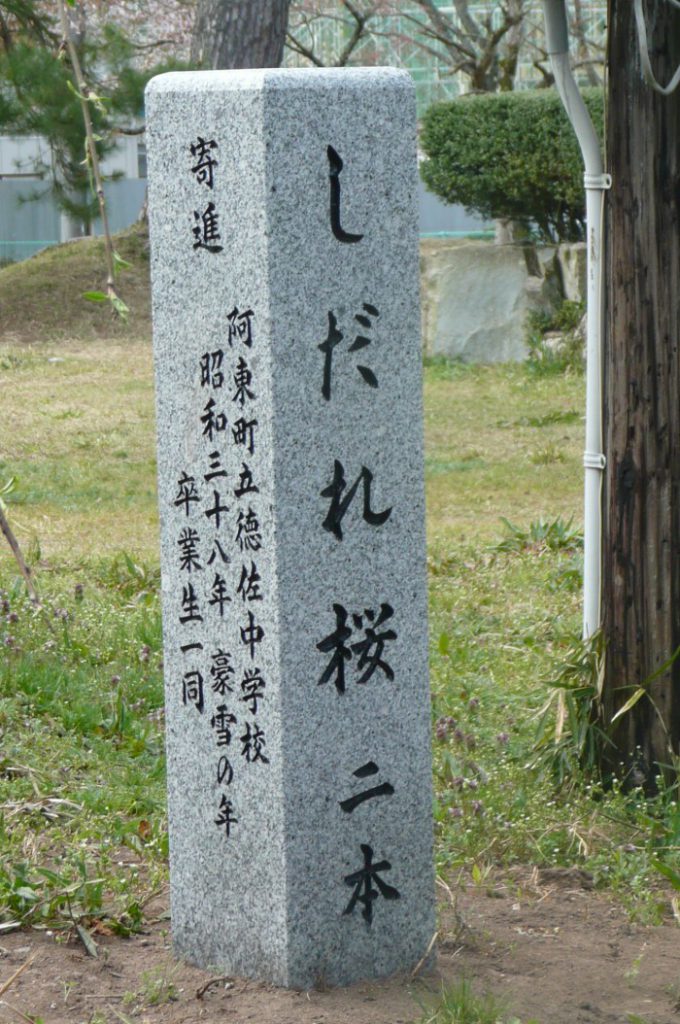 しだれ桜二本
寄進
阿東町立徳佐中学校
昭和三十八年 豪雪の年
卒業生一同